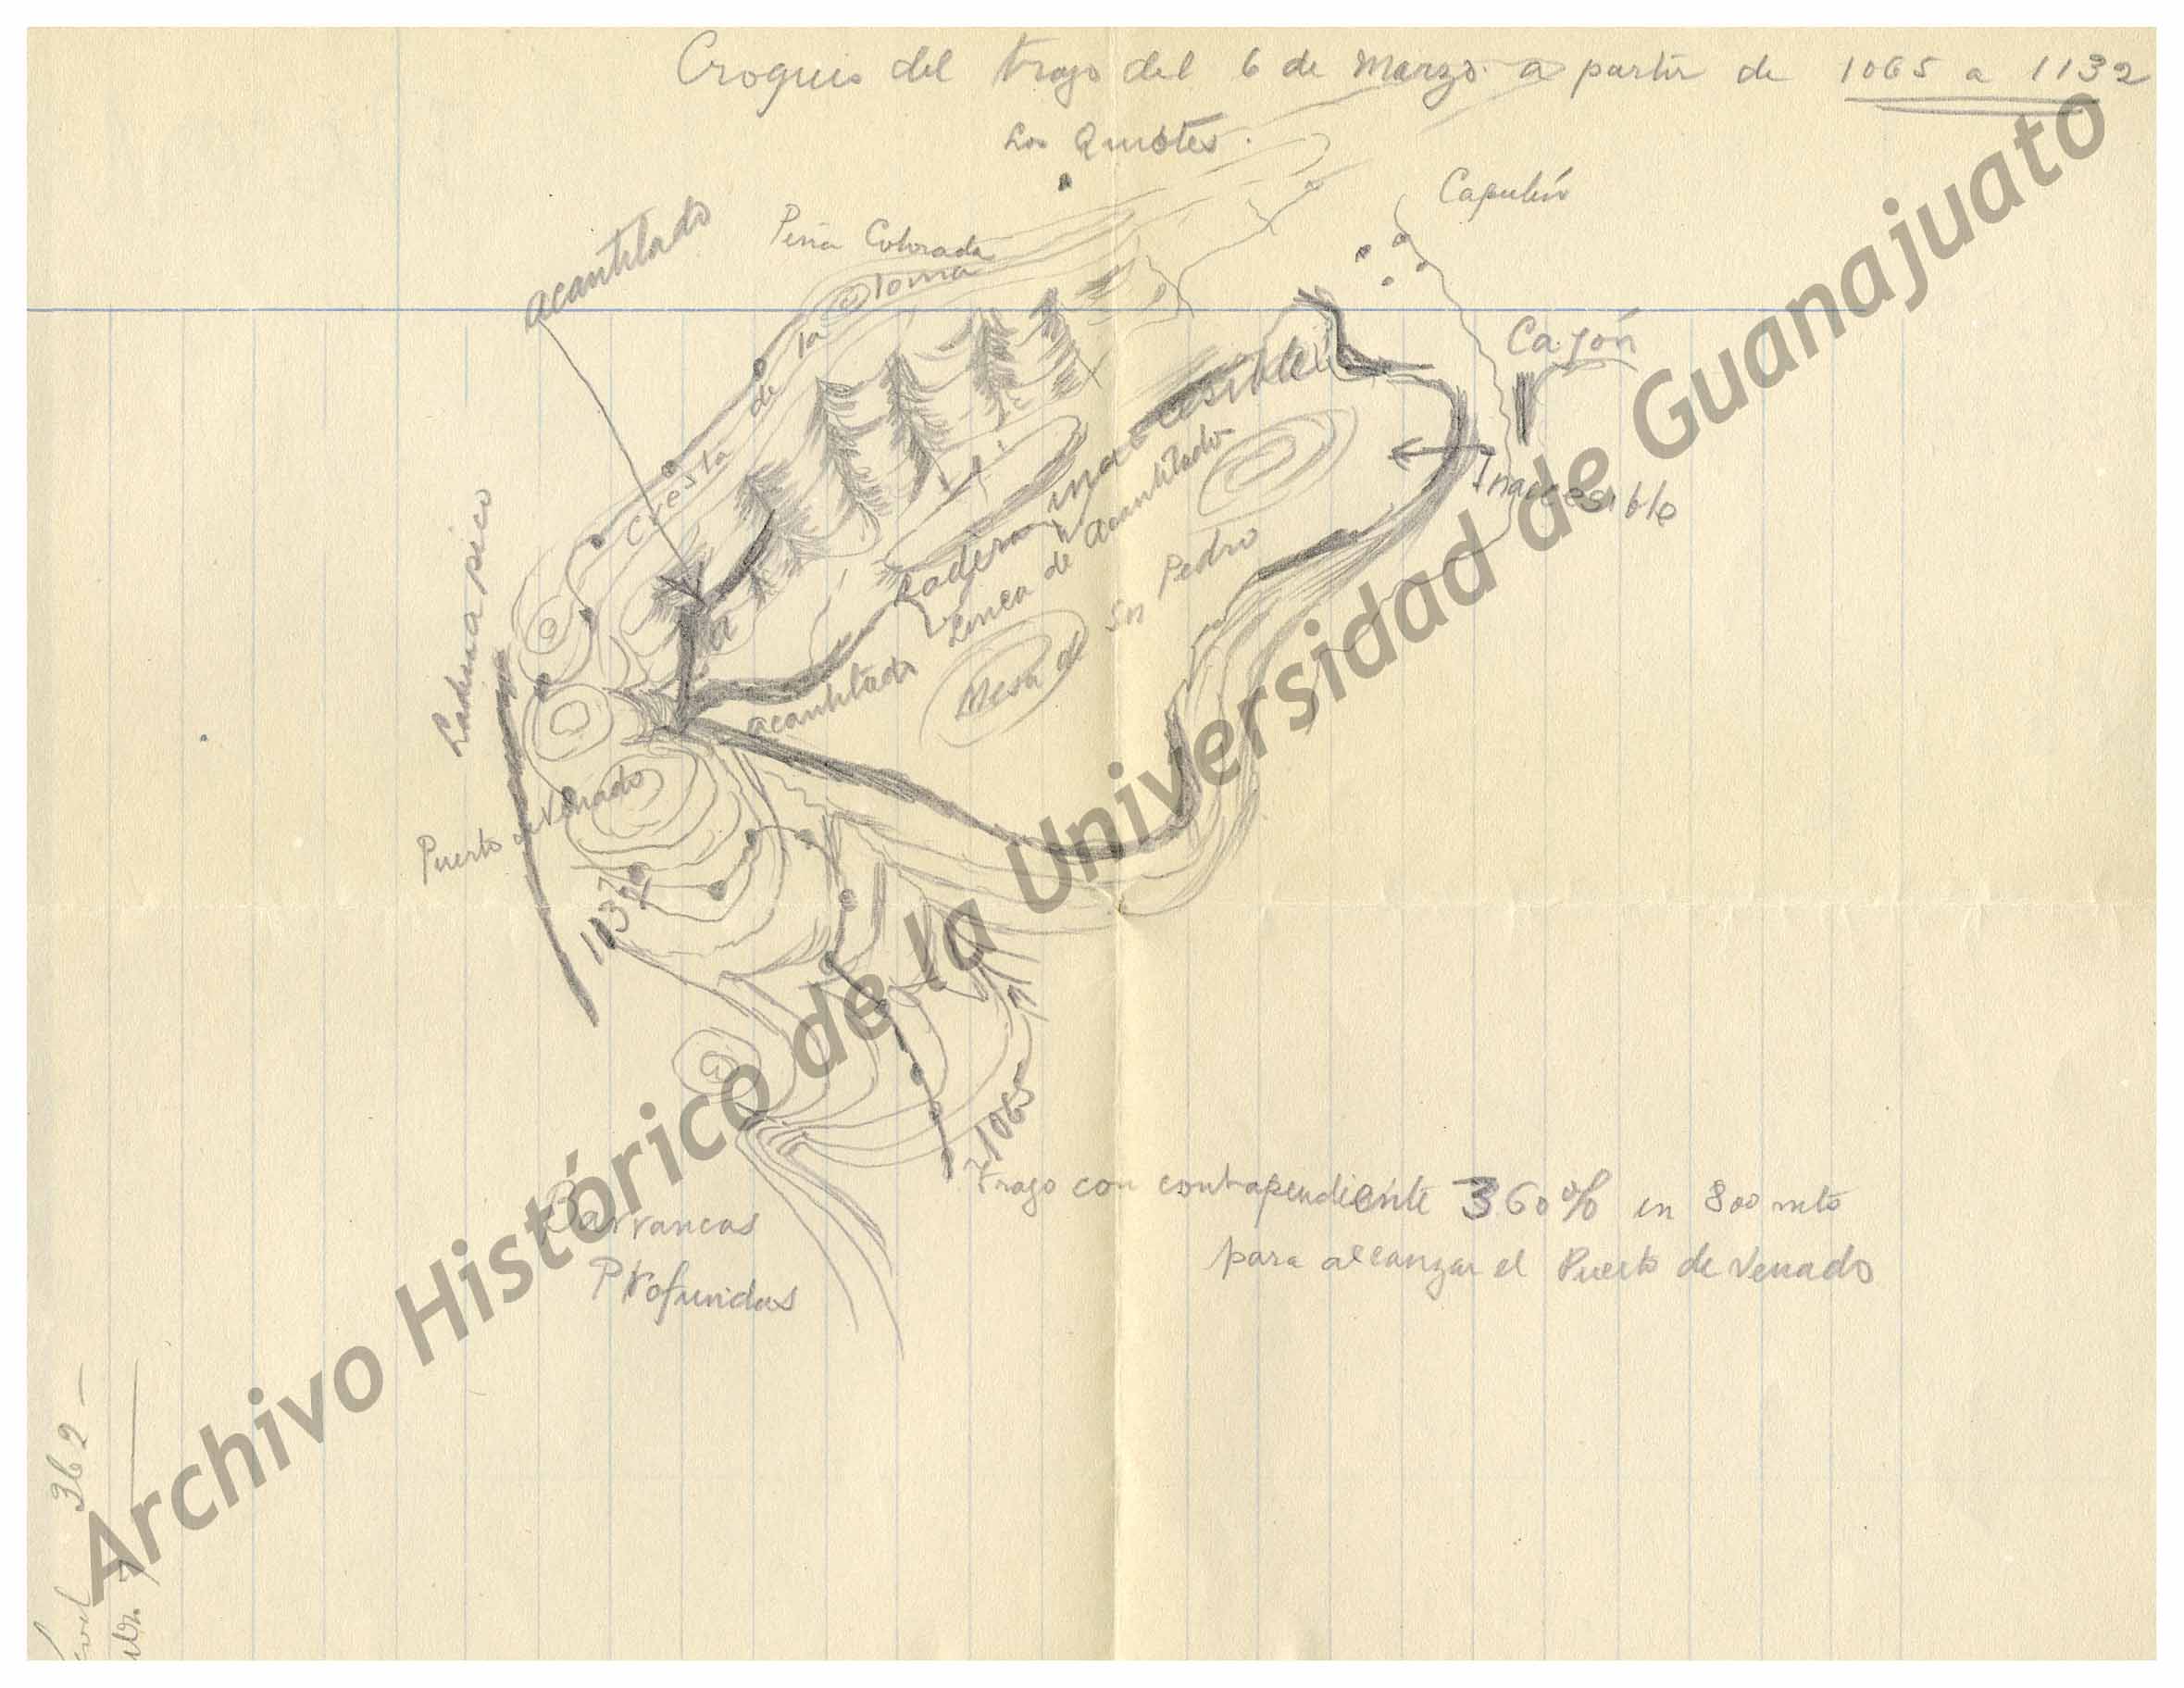 Croquis del trazo del 6 de Marzo a partir de 1065 a 1132
Los Quiotes.
Capulín
acantilado
Peña Colorada
Cresta de la loma
Cajón
Inaccesible
Ladera inaccesible
Linea de acantilado
Ladera a pico
acantilado
Mesa de Sn Pedro
Puerto de Venado
1132
1065
Trazo con contrapendiente 360% en 800 mts
para alcanzar el Puerto de Venado
Barrancas
Profundas
362
Archivo Histórico de la Universidad de Guanajuato